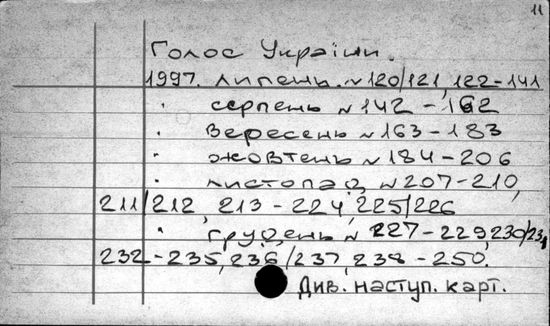 11
Голос України.
1997. липень. N 120/121, 122-141
" серпень N 142-162
" вересень N 163-183
" жовтень N 184-206
" листопад N 207-210,
211/212, 213-224, 225/226
" грудень N 227-229, 230/231,
232-235, 236/237, 238-250.
Див. наступ. карт.